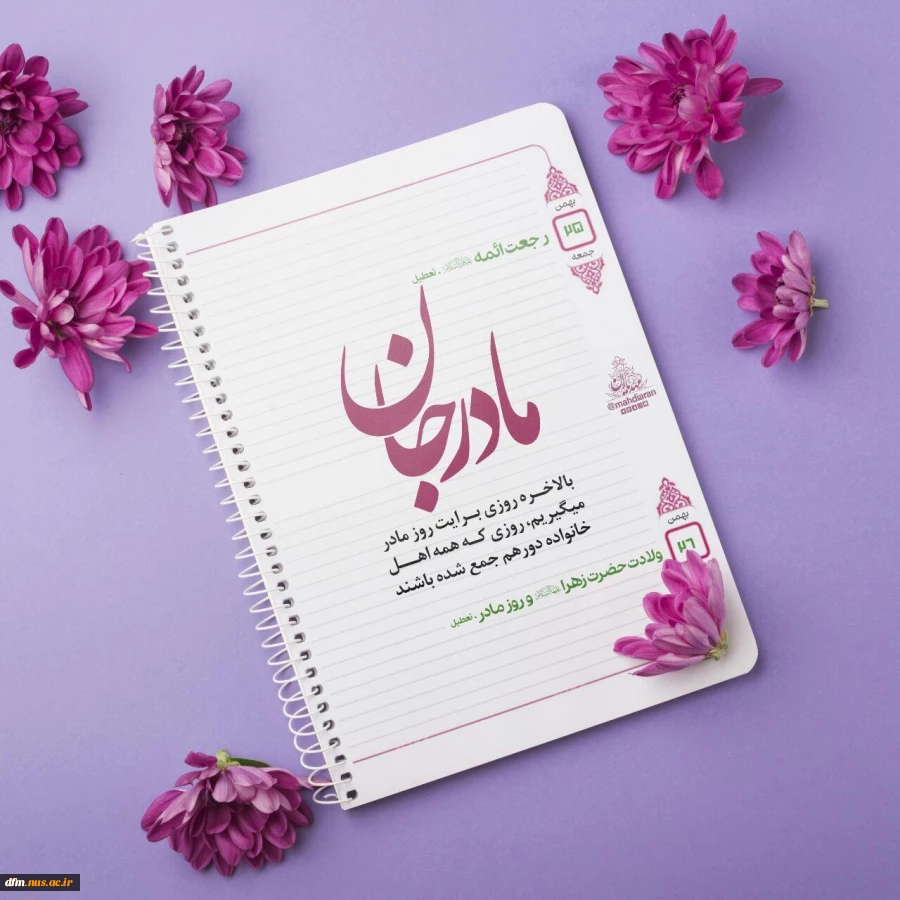 بهمن
۲۵
جمعه
رجعت ائمه علیهم‌السلام . تعطیل
مادر جان
مهدیاران
@mahdiaran
بالاخره روزی برایت روز مادر
میگیریم، روزی که همه اهل
خانواده دور هم جمع شده باشند
بهمن
۲۶
ولادت حضرت زهرا و روز مادر . تعطیل
dfm.nus.ac.ir